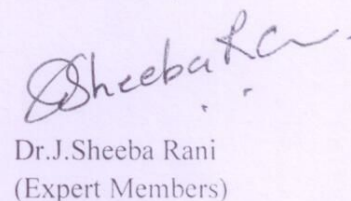 JSheebaRan
Dr.J.Sheeba Rani
(Expert Members)